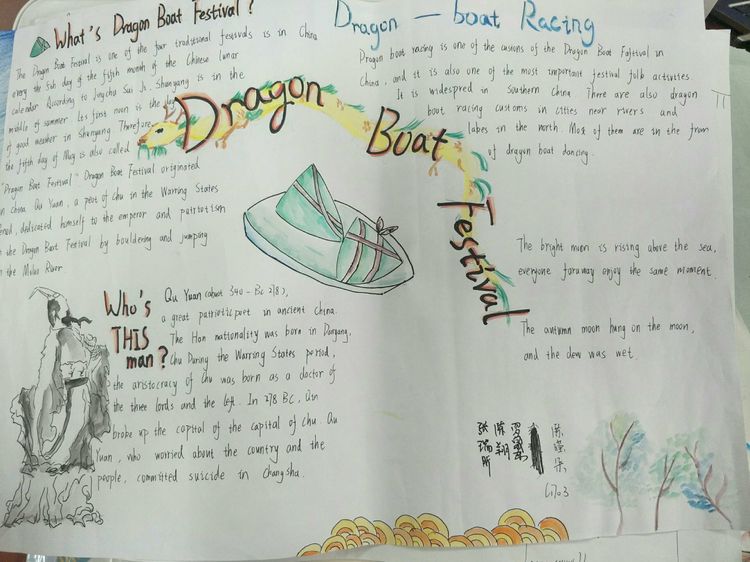 What's Dragon Boat Festival?
The Dragon Boat Festival is one of the four traditional fesgivals is in China
every the 5th day of the fifth month of the Chinese lunar
calendar According to Jingchu Sui Ji. Shunyang is in the
middle of summer. Its first noon is the day
of good weather in Shunyang Therefore,
the fifth day of May is also called
"Dragon Boat Festival" Dragon Boat Festival originated
in China. Qu Yuan, a poet of Chu in the Warring States
period, dedicated himself to the emperor and patriotism
on the Dragon Boat Festival by bouldering and jumping
in the Miluo River
Dragon Boat Festival
Dragon - boat Racing
Dragon boat racing is one of the customs of the Dragon Boat Festival in
China, and it is also one of the most important festival folk activities.
It is widespred in Southern China. There are also dragon
boat racing customs in cities near rivers and
lakes in the north. Most of them are in the from
of dragon boat dancing.
The bright moon is rising above the sea,
everyone faraway enjoy the same moment.
The autumn moon hung on the moon,
and the dew was wet.
Who's
THIS
man?
Qu Yuan (about 340 - BC 278),
a great patriotic poet in ancient China.
The Han nationality was born in Danyang,
Chu During the Warring States period,
the aristocracy of Chu was born as a doctor of
the three lords and the left. In 278 BC, Qin
broke up the capital of the capital of Chu. Qu
Yuan, who worried about the country and the
people, committed suicide in Changsha.
张瑞昕